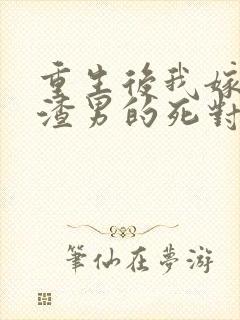 重生後我嫁
渣男的死對
筆仙在夢游